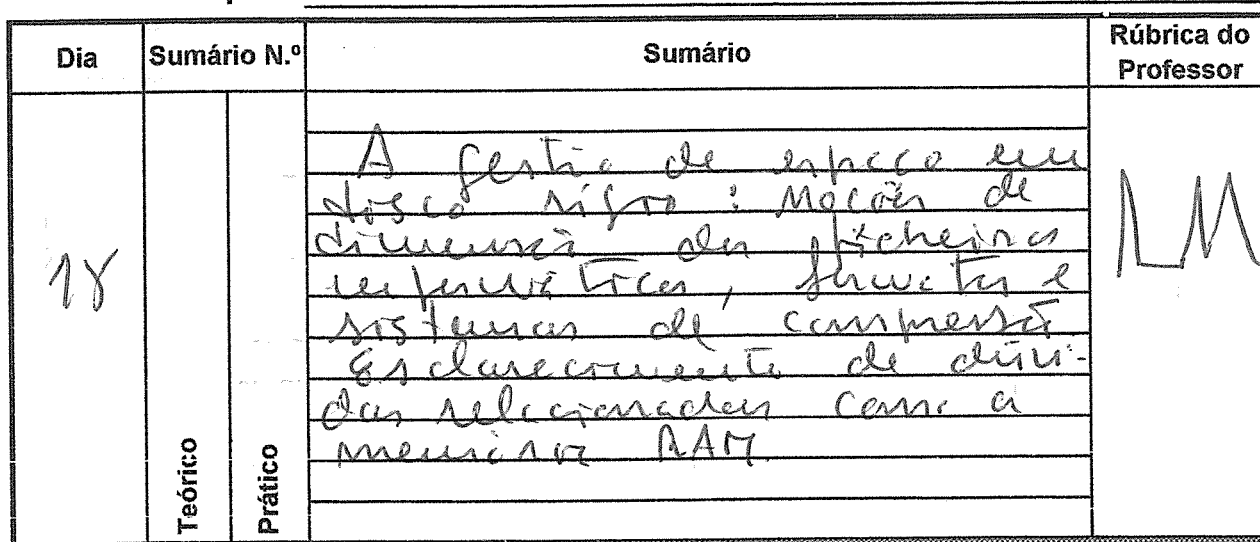 Dia
Sumário N.º
Sumário
Rúbrica do
Professor
18
A gestão de espaço em
disco rígido : Noções de
dimensão dos ficheiros
informáticos, formatos e
sistemas de compressão
Esclarecimento de dúvi-
das relacionadas com a
memória RAM.
Teórico
Prático